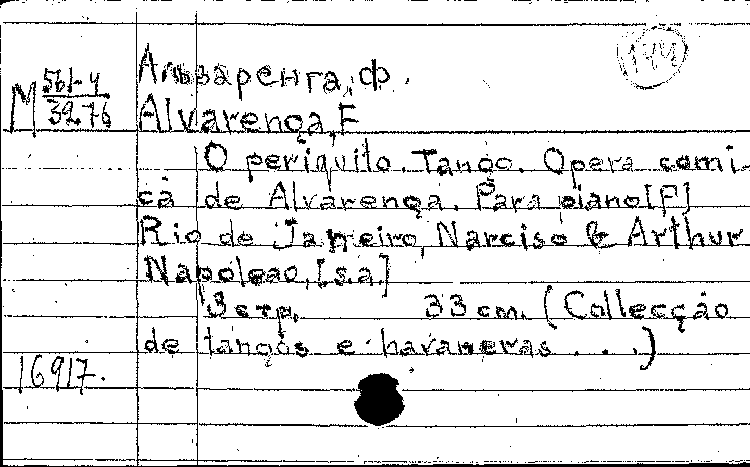 144
М 561-4
3276
Альваренга, Ф.
Alvarenga, F
O periquito. Tango. Opera comi-
ca de Alvarenga. Para piano [F]
Rio de Janeiro, Narciso & Arthur
Napoleao, [s.a.]
3 стр. 33 cm. (Collecção
de tangos e havaneras . . .)
16917.